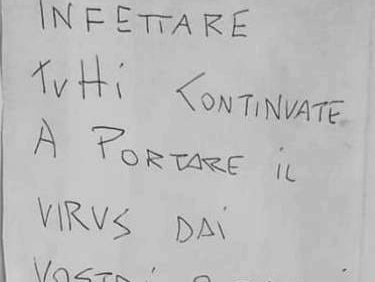 INFETTARE
TUTTI CONTINUATE
A PORTARE IL
VIRUS DAI
VOSTRI